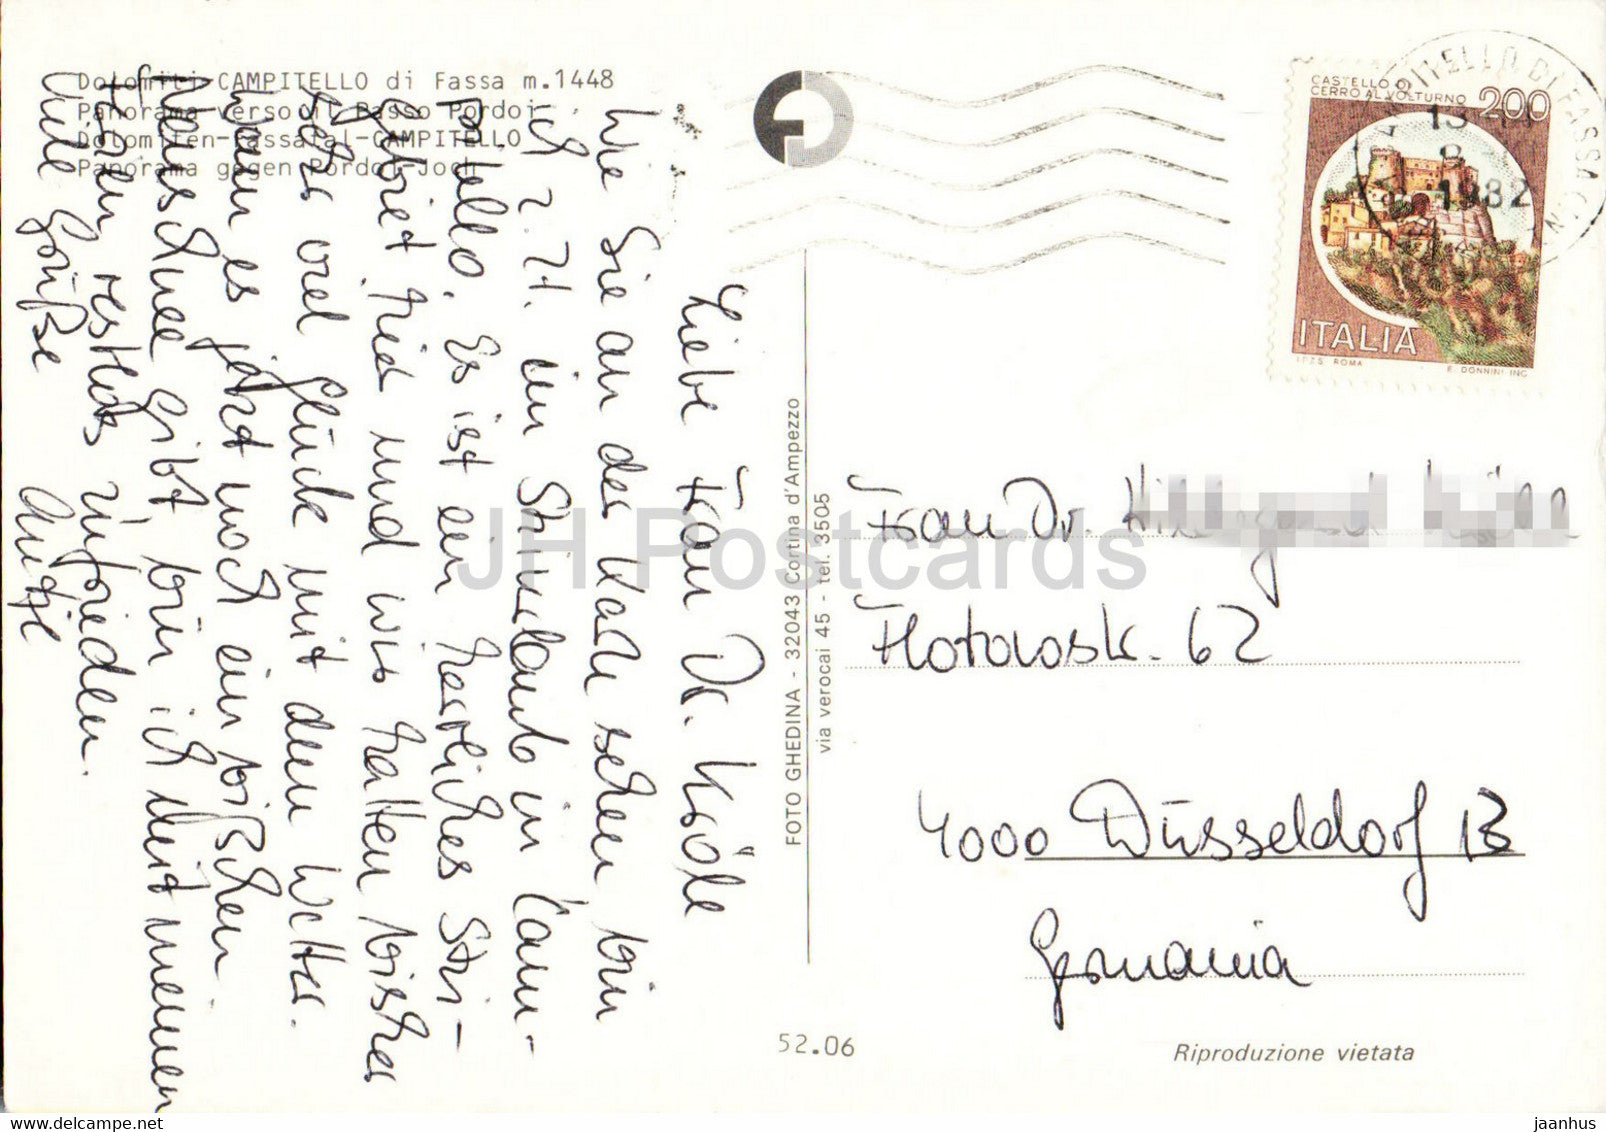 Dolomiti-CAMPITELLO di Fassa m.1448
Panorama verso il Passo Pordoi
Dolomiten-Fassatal-CAMPITELLO
Panorama gegen Pordoi-Joch
Liebe Frau Dr. Kröll
Wie Sie an der Karte sehen bin
ich z. Zt. im Skiurlaub in Cam-
pitello. Es ist ein herrliches Ski-
gebiet hier und wir hatten bisher
sehr viel Glück mit dem Wetter.
Wenn es jetzt noch ein bißchen
Neuschnee gibt, bin ich mit meinen
restlos zufrieden.
Viele Grüße
Antje
FOTO GHEDINA - 32043 Cortina d'Ampezzo
via verocai 45 - tel. 3505
52.06
CASTELLO DI
CERRO AL VOLTURNO 200
ITALIA
I.P.Z.S. ROMA E. DONNINI INC.
CAMPITELLO DI FASSA
13
8
1982
Frau Dr.
Flotowstr. 62
4000 Düsseldorf 13
Germania
Riproduzione vietata
JH Postcards
jaanhus